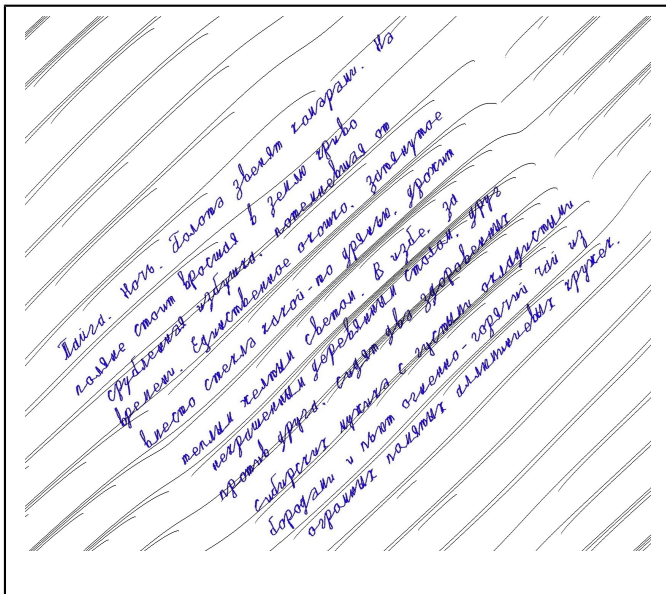 Тайга. Ночь. Болота звенят комарами. На
поляне стоит вросшая в землю криво
срубленная избушка, потемневшая от
времени. Единственное окошко, затянутое
вместо стекла какой-то дрянью, дрожит
теплым желтым светом. В избе, за
некрашенным деревянным столом, друг
против друга, сидят два здоровенных
сибирских мужика с густыми окладистыми
бородами и пьют огненно-горячий чай из
огромных помятых алюминиевых кружек.